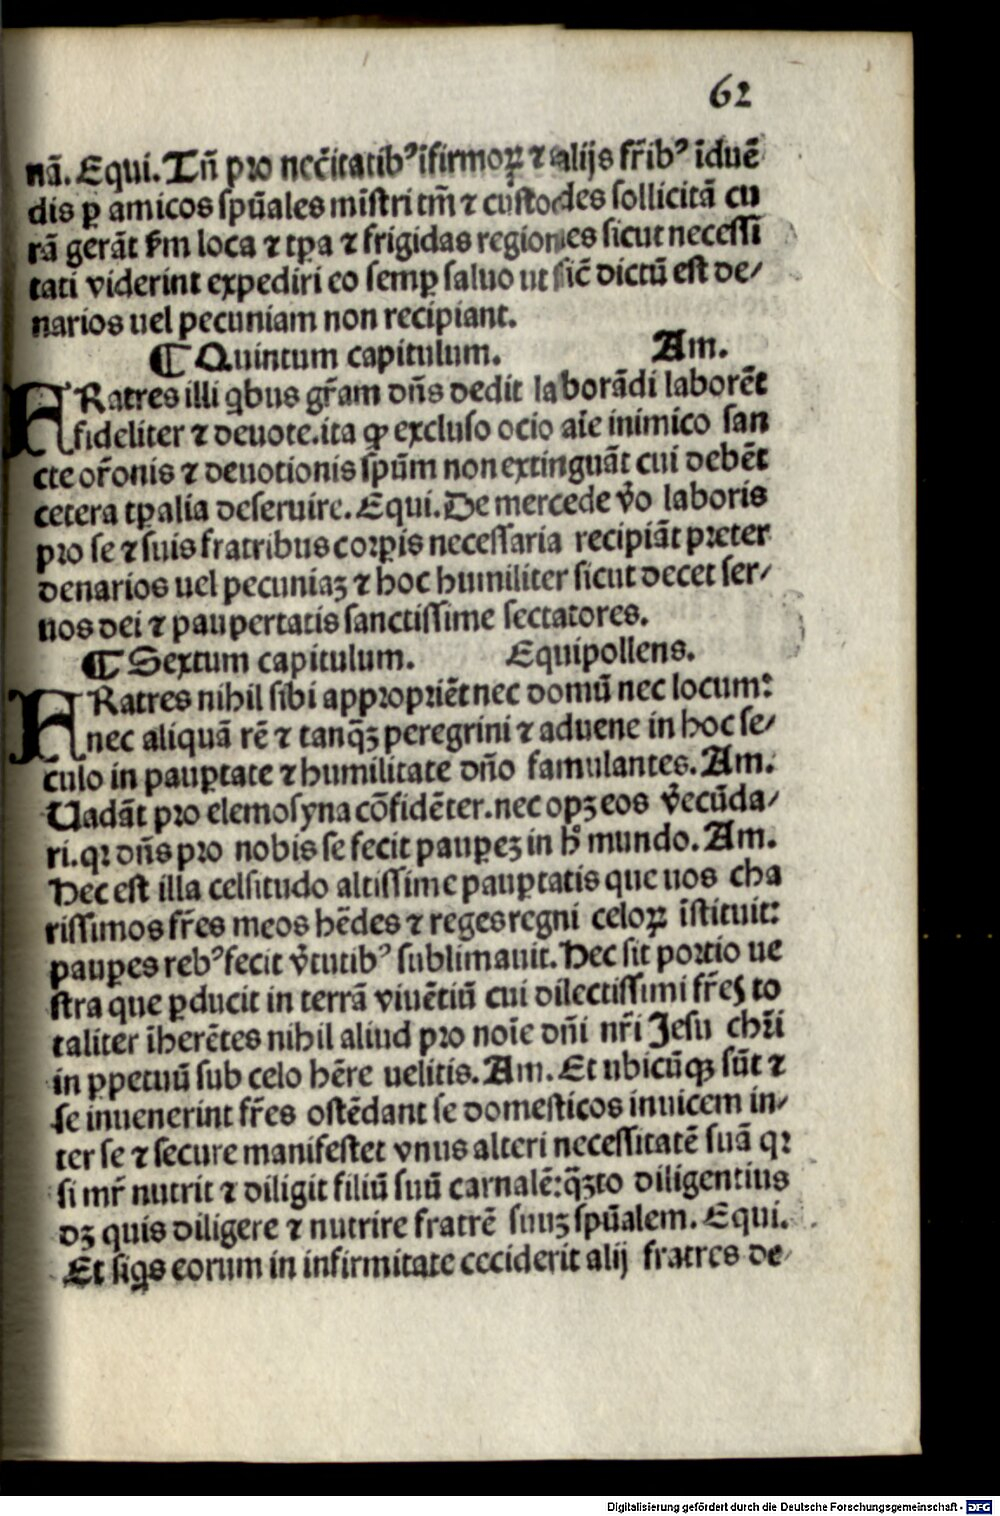 62
nā. Equi. Tn̄ pro nec̄itatibꝰ īfirmoꝝ ⁊ alijs fr̄ibꝰ īduē
dis ꝑ amicos spūales mīstri tm̄ ⁊ custodes sollicitā cu
rā gerāt ẜm loca ⁊ tꝑa ⁊ frigidas regiones sicut necessi
tati viderint expediri eo semꝑ saluo ut sic̄ dictū est de/
narios uel pecuniam non recipiant.
¶ Quintum capitulum. Am.
FRatres illi qͥbus gr̄am dn̄s dedit laborādi laborēt
fideliter ⁊ deuote.ita ꝙ excluso ocio aīe inimico san
cte or̄onis ⁊ deuotionis spūm non extinguāt cui debēt
cetera tꝑalia deseruire. Equi. De mercede v̄o laboris
pro se ⁊ suis fratribus corꝑis necessaria recipiāt preter
denarios uel pecuniaꝫ ⁊ hoc humiliter sicut decet ser/
uos dei ⁊ paupertatis sanctissime sectatores.
¶ Sextum capitulum. Equipollens.
FRatres nihil sibi appropriēt nec domū nec locum:
nec aliquā rē ⁊ tanqꝫ̄ peregrini ⁊ aduene in hoc se/
culo in pauꝑtate ⁊ humilitate dn̄o famulantes. Am.
Uadāt pro elemosyna cōfidēter.nec opꝫ eos v̄ecūda/
ri.qꝛ dn̄s pro nobis se fecit pauꝑeꝫ in hͦ mundo. Am.
Hec est illa celsitudo altissime pauꝑtatis que uos cha
rissimos fr̄es meos hēdes ⁊ reges regni celoꝝ īstituit:
pauꝑes rebꝰ fecit v̄tutibꝰ sublimauit. Hec sit portio ue
stra que ꝑducit in terrā viuētiū cui dilectissimi fr̄es to
taliter īherētes nihil aliud pro noīe dn̄i nr̄i Jesu chr̄i
in ꝑpetuū sub celo hēre uelitis. Am. Et ubicūqꝫ sūt ⁊
se inuenerint fr̄es ostēdant se domesticos inuicem in/
ter se ⁊ secure manifestet vnus alteri necessitatē suā qꝛ
si mr̄ nutrit ⁊ diligit filiū suū carnalē:qꝫ̄to diligentius
dꝫ quis diligere ⁊ nutrire fratrē suuꝫ spūalem. Equi.
Et siqͥs eorum in infirmitate ceciderit alij fratres de/
Digitalisierung gefördert durch die Deutsche Forschungsgemeinschaft - DFG